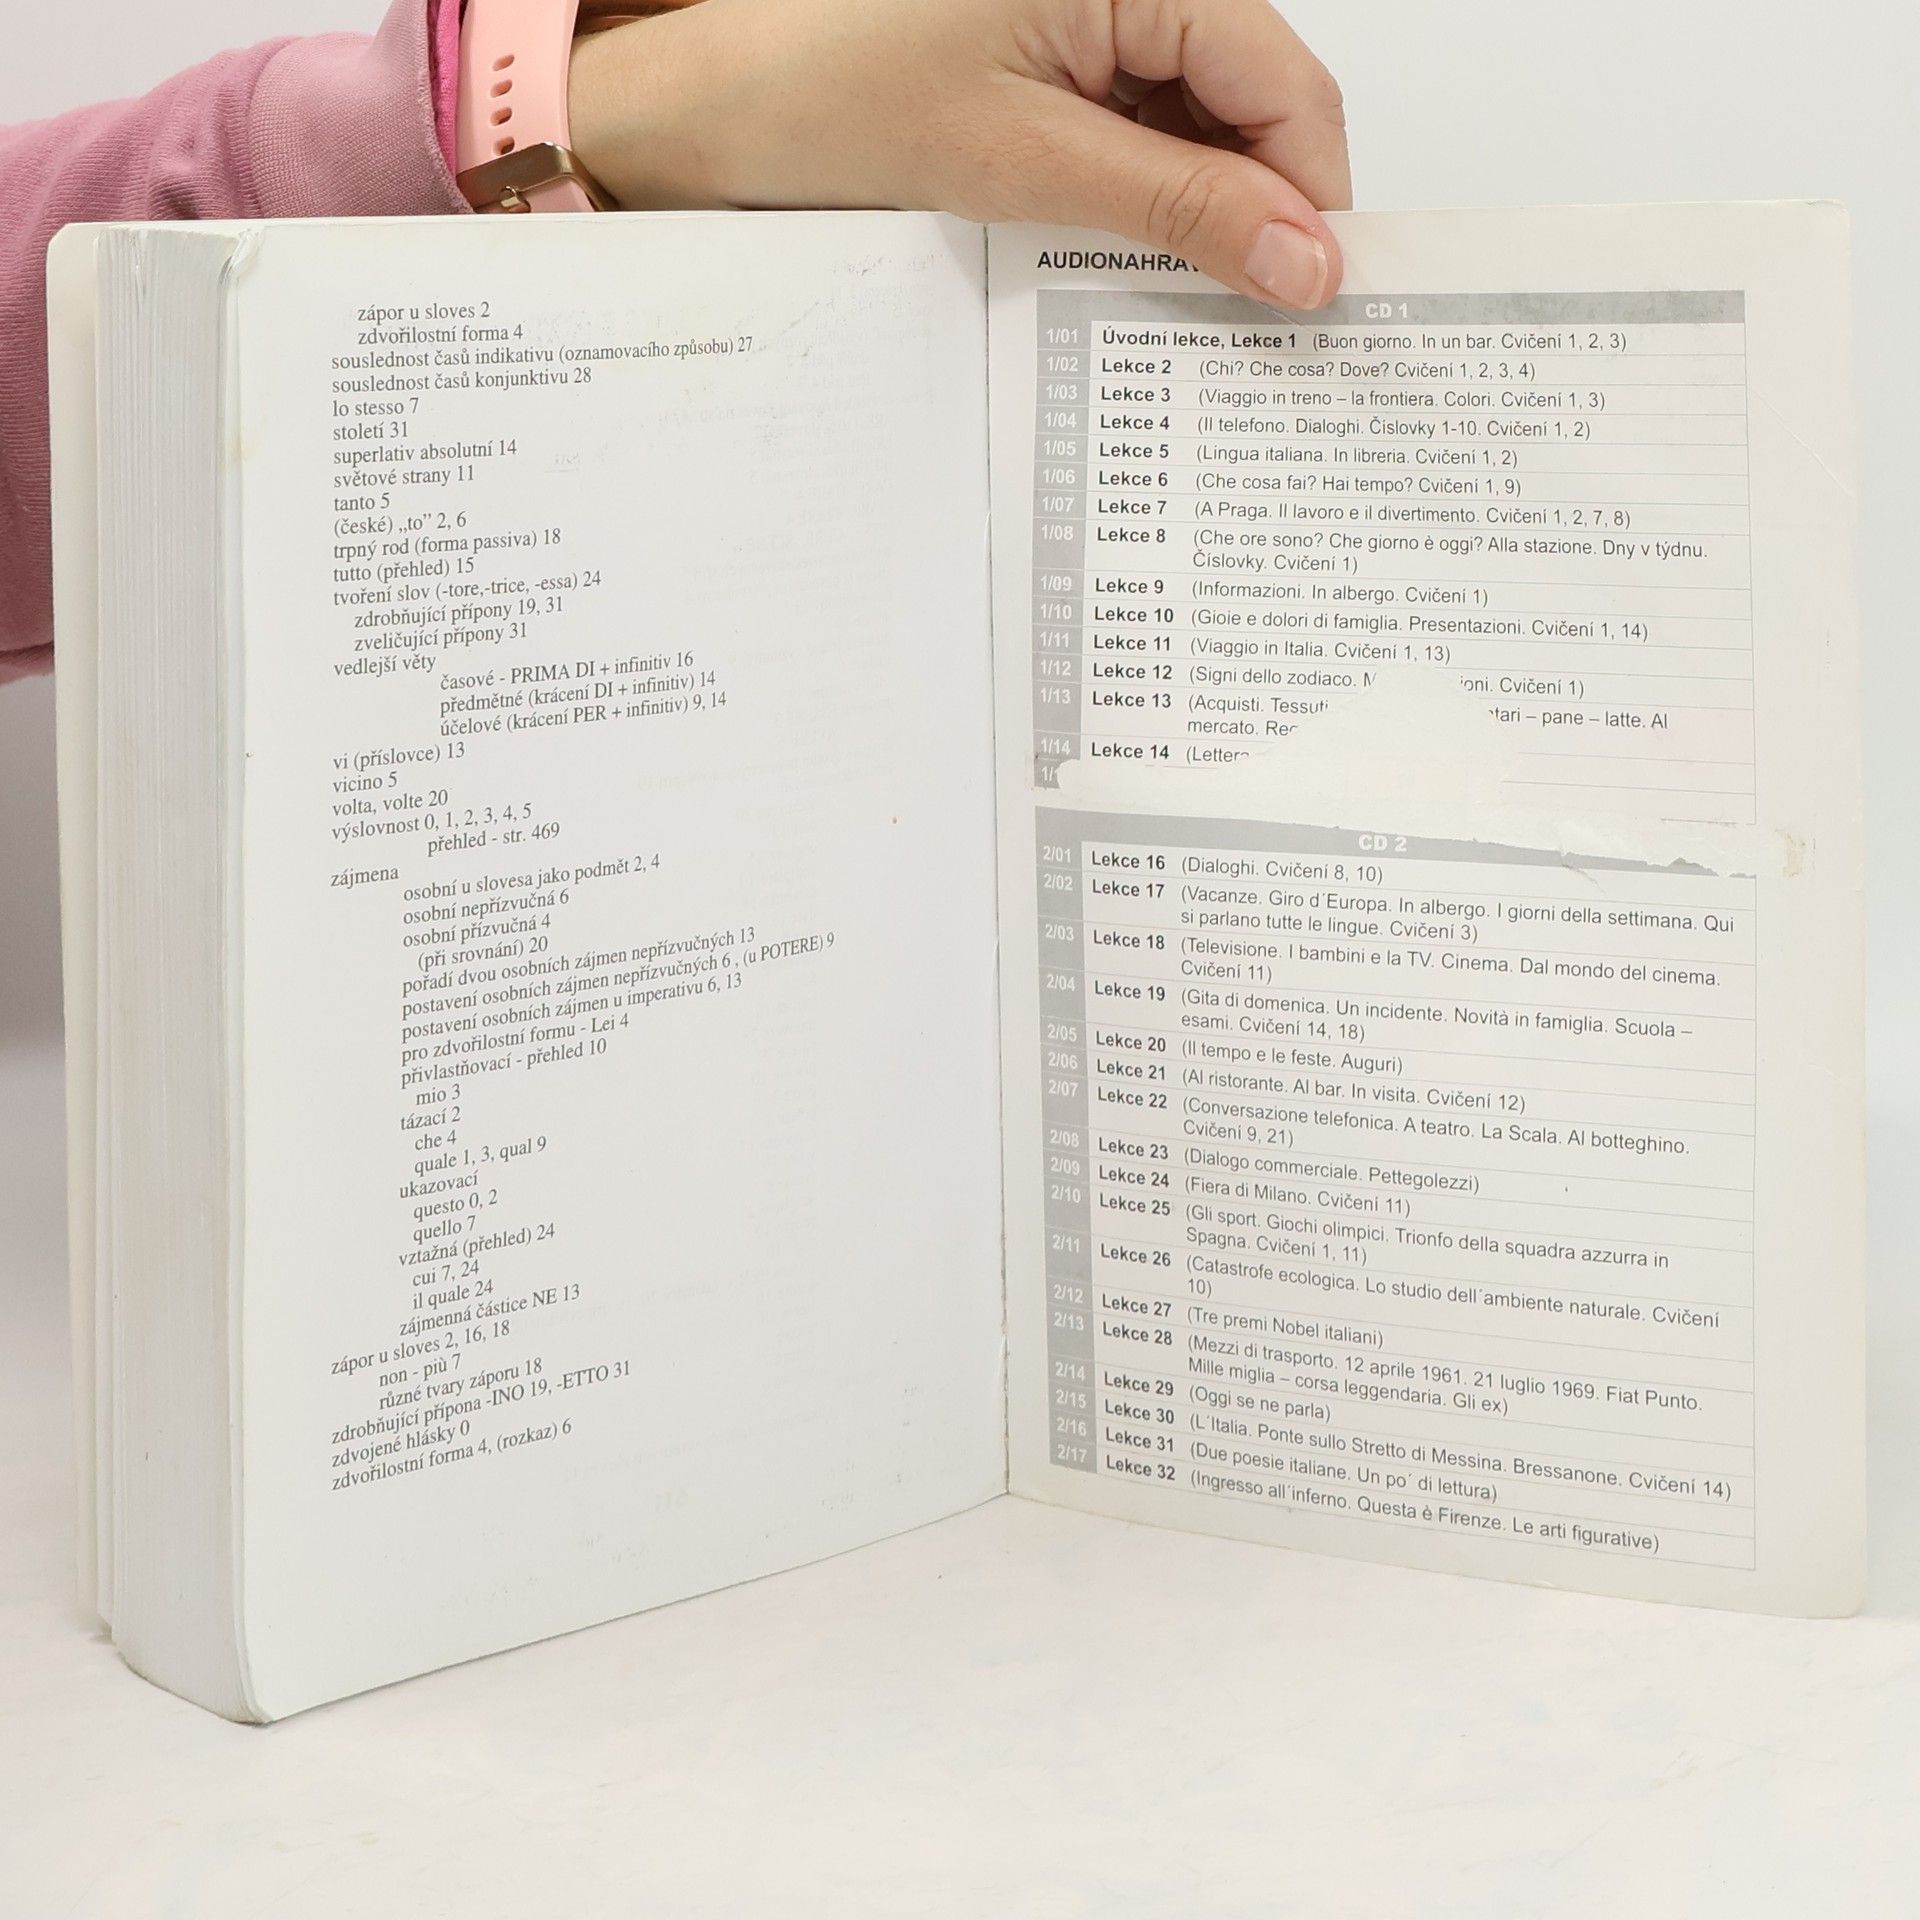 zápor u sloves 2
zdvořilostní forma 4
souslednost časů indikativu (oznamovacího způsobu) 27
souslednost časů konjunktivu 28
lo stesso 7
století 31
superlativ absolutní 14
světové strany 11
tanto 5
(české) „to” 2, 6
trpný rod (forma passiva) 18
tutto (přehled) 15
tvoření slov (-tore,-trice, -essa) 24
zdrobňující přípony 19, 31
zveličující přípony 31
vedlejší věty
časové - PRIMA DI + infinitiv 16
předmětné (krácení DI + infinitiv) 14
účelové (krácení PER + infinitiv) 9, 14
vi (příslovce) 13
vicino 5
volta, volte 20
výslovnost 0, 1, 2, 3, 4, 5
přehled - str. 469
zájmena
osobní u slovesa jako podmět 2, 4
osobní nepřízvučná 6
osobní přízvučná 4
(při srovnání) 20
pořadí dvou osobních zájmen nepřízvučných 13
postavení osobních zájmen nepřízvučných 6 , (u POTERE) 9
postavení osobních zájmen u imperativu 6, 13
pro zdvořilostní formu - Lei 4
přivlastňovací - přehled 10
mio 3
tázací 2
che 4
quale 1, 3, qual 9
ukazovací
questo 0, 2
quello 7
vztažná (přehled) 24
cui 7, 24
il quale 24
zájmenná částice NE 13
zápor u sloves 2, 16, 18
non - più 7
různé tvary záporu 18
zdrobňující přípona -INO 19, -ETTO 31
zdvojené hlásky 0
zdvořilostní forma 4, (rozkaz) 6
CD 1
1/01 Úvodní lekce, Lekce 1 (Buon giorno. In un bar. Cvičení 1, 2, 3)
1/02 Lekce 2 (Chi? Che cosa? Dove? Cvičení 1, 2, 3, 4)
1/03 Lekce 3 (Viaggio in treno – la frontiera. Colori. Cvičení 1, 3)
1/04 Lekce 4 (Il telefono. Dialoghi. Číslovky 1-10. Cvičení 1, 2)
1/05 Lekce 5 (Lingua italiana. In libreria. Cvičení 1, 2)
1/06 Lekce 6 (Che cosa fai? Hai tempo? Cvičení 1, 9)
1/07 Lekce 7 (A Praga. Il lavoro e il divertimento. Cvičení 1, 2, 7, 8)
1/08 Lekce 8 (Che ore sono? Che giorno è oggi? Alla stazione. Dny v týdnu.
Číslovky. Cvičení 1)
1/09 Lekce 9 (Informazioni. In albergo. Cvičení 1)
1/10 Lekce 10 (Gioie e dolori di famiglia. Presentazioni. Cvičení 1, 14)
1/11 Lekce 11 (Viaggio in Italia. Cvičení 1, 13)
1/12 Lekce 12 (Signi dello zodiaco. Cvičení 1)
1/13 Lekce 13 (Acquisti. – pane – latte. Al
mercato.
1/14 Lekce 14
CD 2
2/01 Lekce 16 (Dialoghi. Cvičení 8, 10)
2/02 Lekce 17 (Vacanze. Giro d´Europa. In albergo. I giorni della settimana. Qui
si parlano tutte le lingue. Cvičení 3)
2/03 Lekce 18 (Televisione. I bambini e la TV. Cinema. Dal mondo del cinema.
Cvičení 11)
2/04 Lekce 19 (Gita di domenica. Un incidente. Novità in famiglia. Scuola –
esami. Cvičení 14, 18)
2/05 Lekce 20 (Il tempo e le feste. Auguri)
2/06 Lekce 21 (Al ristorante. Al bar. In visita. Cvičení 12)
2/07 Lekce 22 (Conversazione telefonica. A teatro. La Scala. Al botteghino.
Cvičení 9, 21)
2/08 Lekce 23 (Dialogo commerciale. Pettegolezzi)
2/09 Lekce 24 (Fiera di Milano. Cvičení 11)
2/10 Lekce 25 (Gli sport. Giochi olimpici. Trionfo della squadra azzurra in
Spagna. Cvičení 1, 11)
2/11 Lekce 26 (Catastrofe ecologica. Lo studio dell´ambiente naturale. Cvičení
10)
2/12 Lekce 27 (Tre premi Nobel italiani)
2/13 Lekce 28 (Mezzi di trasporto. 12 aprile 1961. 21 luglio 1969. Fiat Punto.
Mille miglia – corsa leggendaria. Gli ex)
2/14 Lekce 29 (Oggi se ne parla)
2/15 Lekce 30 (L´Italia. Ponte sullo Stretto di Messina. Bressanone. Cvičení 14)
2/16 Lekce 31 (Due poesie italiane. Un po´ di lettura)
2/17 Lekce 32 (Ingresso all´inferno. Questa è Firenze. Le arti figurative)